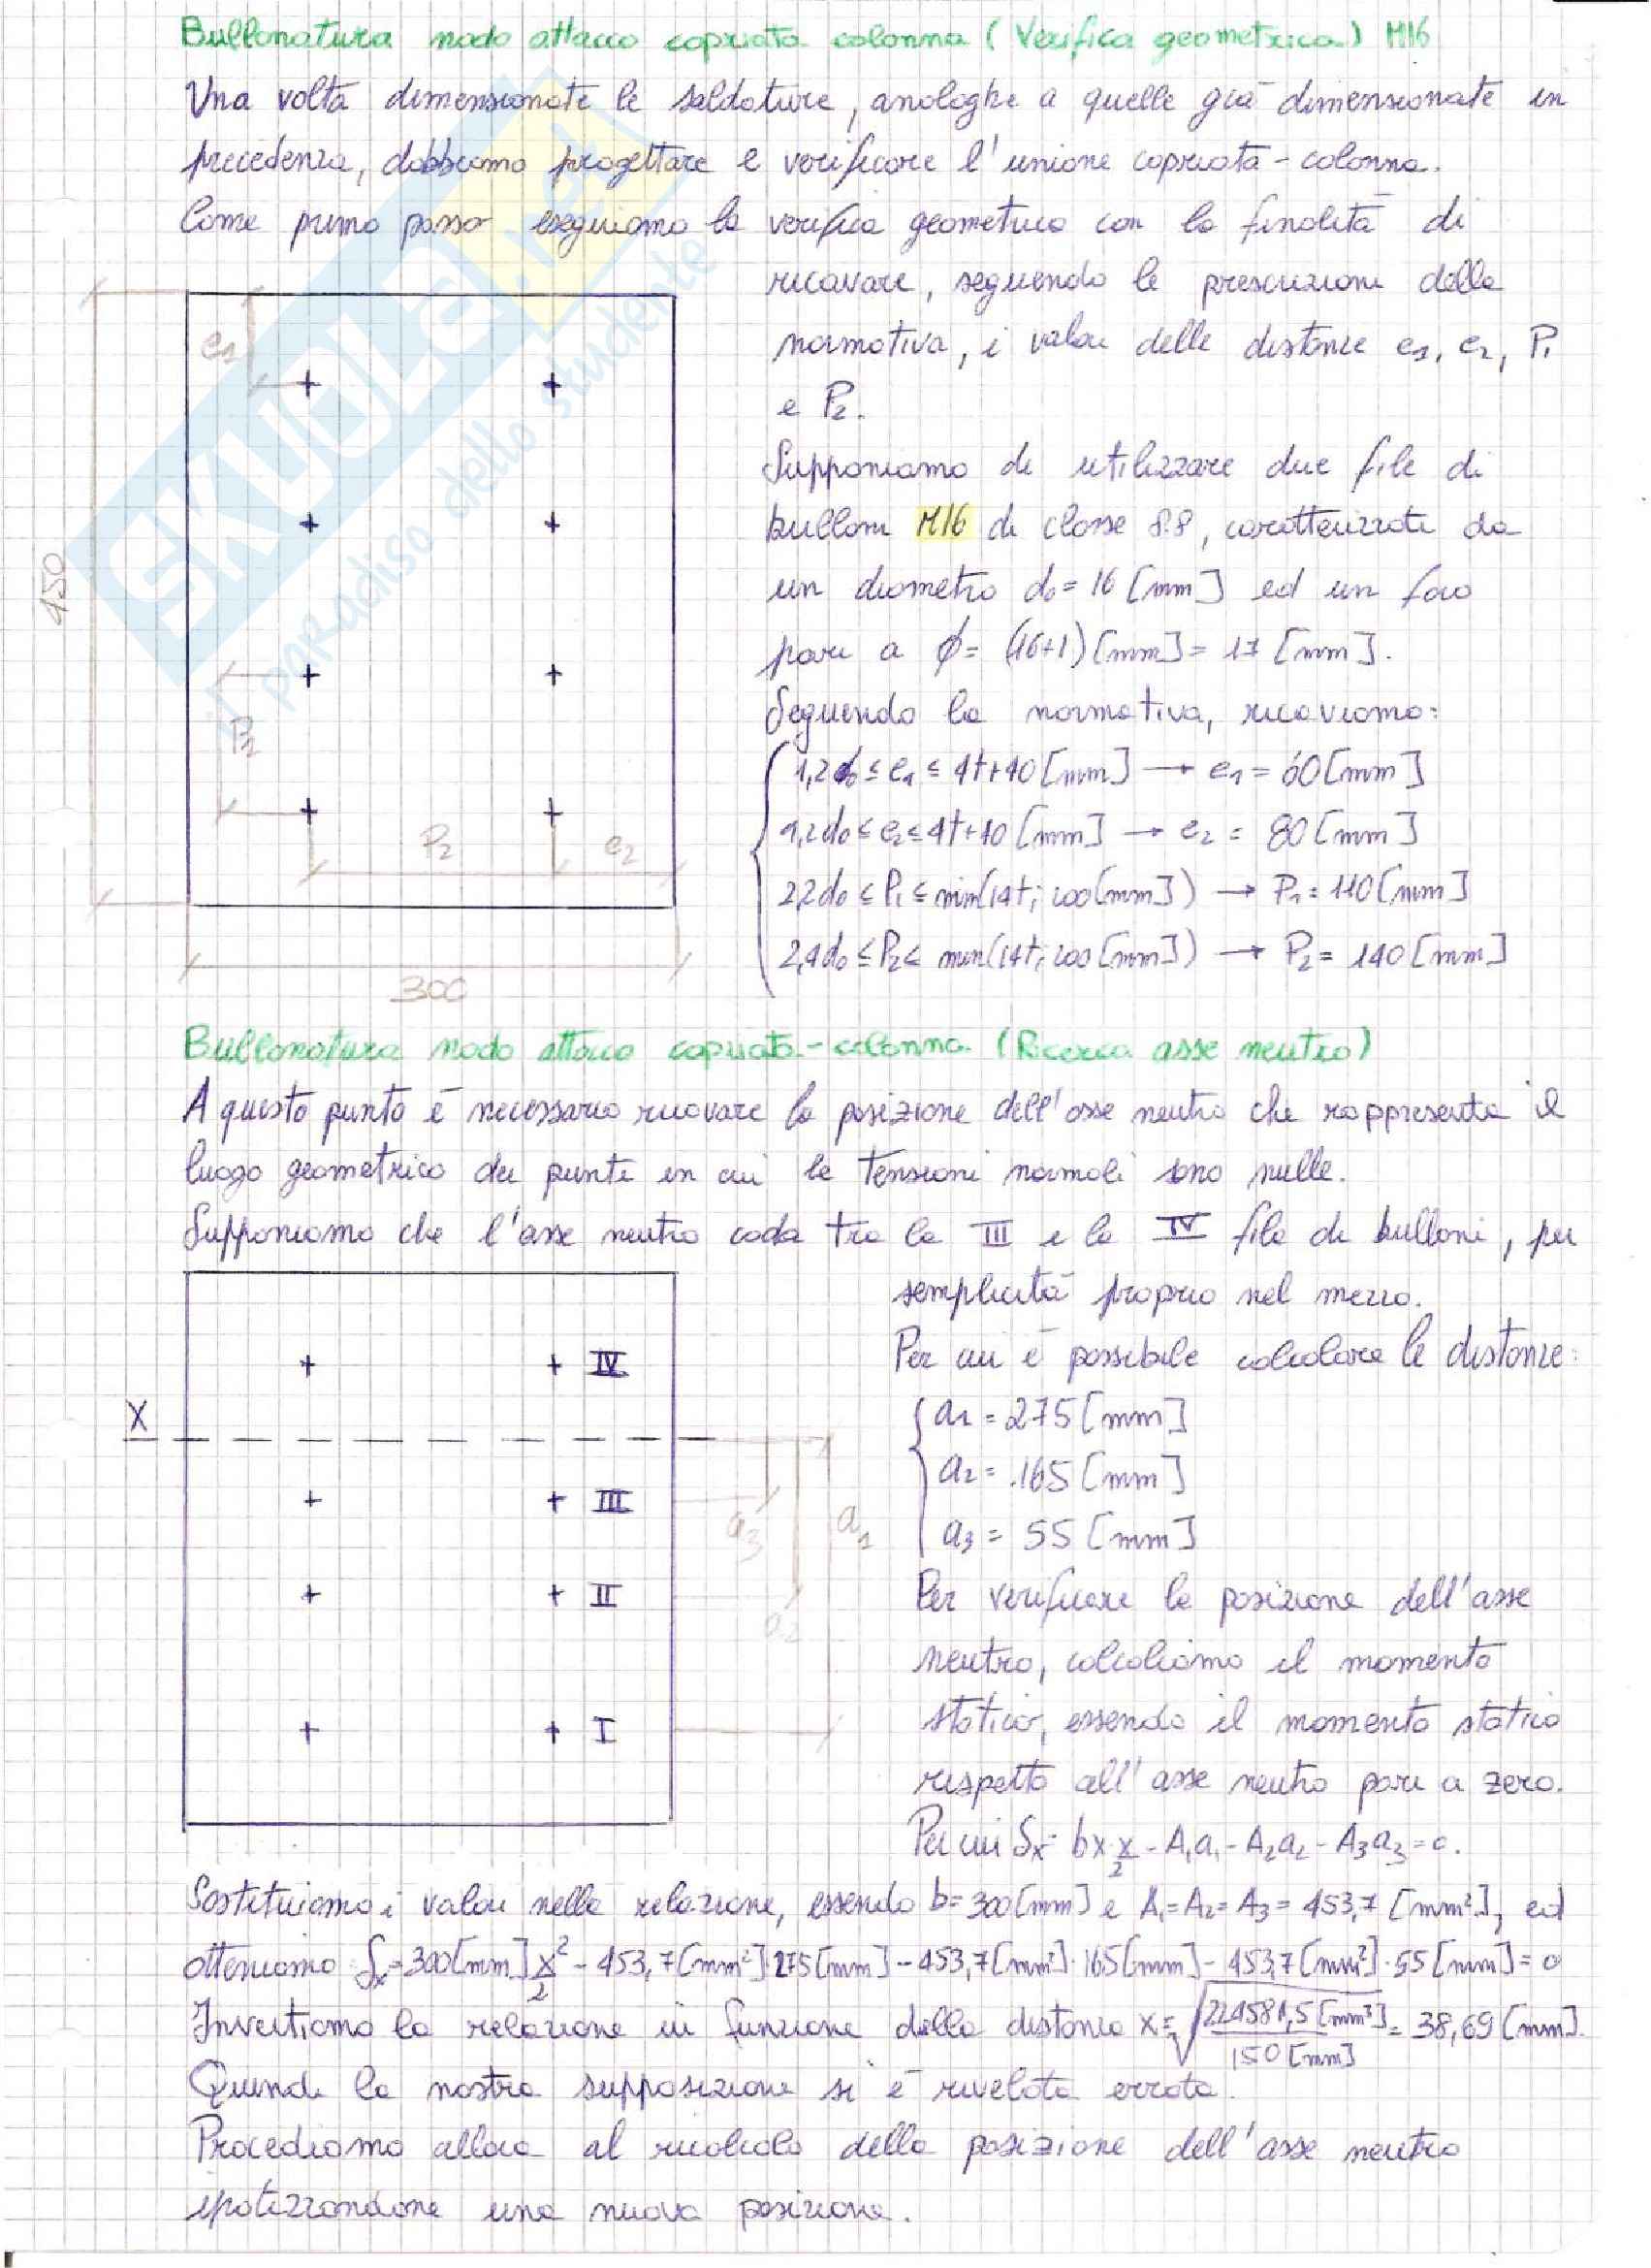 Bullonatura nodo attacco capriata colonna (Verifica geometrica) M16
Una volta dimensionate le saldature, analoghe a quelle già dimensionate in
precedenza, dobbiamo progettare e verificare l'unione capriata-colonna.
Come primo passo eseguiamo la verifica geometrica con la finalità di
ricavare, seguendo le prescrizioni della
normativa, i valori delle distanze e1, e2, P1
e P2.
Supponiamo di utilizzare due file di
bulloni M16 di classe 8.8, caratterizzati da
un diametro d0 = 16 [mm] ed un foro
pari a ϕ = (16+1) [mm] = 17 [mm].
Seguendo la normativa, ricaviamo:
1,2d0 ≤ e1 ≤ 4t+40 [mm] → e1 = 60 [mm]
1,2d0 ≤ e2 ≤ 4t+40 [mm] → e2 = 80 [mm]
2,2d0 ≤ P1 ≤ min(14t; 200 [mm]) → P1 = 110 [mm]
2,4d0 ≤ P2 ≤ min(14t; 200 [mm]) → P2 = 140 [mm]
e1
450
P1
P2
e2
300
SKUOLA.net
paradiso dello studente
Bullonatura nodo attacco capriata-colonna (Ricerca asse neutro)
A questo punto è necessario ricavare la posizione dell'asse neutro che rappresenta il
luogo geometrico dei punti in cui le tensioni normali sono nulle.
Supponiamo che l'asse neutro cada tra la III e la IV fila di bulloni, per
semplicità proprio nel mezzo.
Per cui è possibile calcolare le distanze:
a1 = 275 [mm]
a2 = 165 [mm]
a3 = 55 [mm]
Per verificare la posizione dell'asse
neutro, calcoliamo il momento
statico, essendo il momento statico
rispetto all'asse neutro pari a zero.
Per cui Sx = bx·x/2 - A1a1 - A2a2 - A3a3 = 0.
IV
X
III
a3
a1
II
a2
I
Sostituiamo i valori nella relazione, essendo b = 300 [mm] e A1 = A2 = A3 = 453,7 [mm²], ed
otteniamo Sx = 300 [mm] x²/2 - 453,7 [mm²]·275 [mm] - 453,7 [mm²]·165 [mm] - 453,7 [mm²]·55 [mm] = 0
Invertiamo la relazione in funzione della distanza x = √(224581,5 [mm³]/150 [mm]) = 38,69 [mm].
Quindi la nostra supposizione si è rivelata errata.
Procediamo allora al ricalcolo della posizione dell'asse neutro
ipotizzandone una nuova posizione.